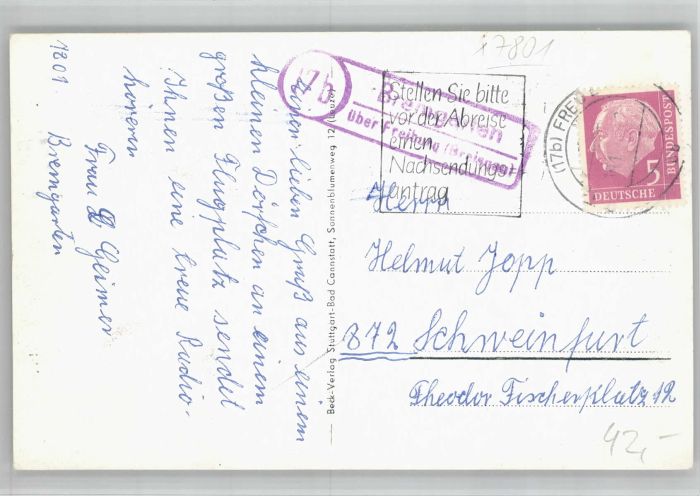 Einen lieben Gruß aus einem
kleinen Dörfchen an einem
großen Flugplatz sendet
Ihnen eine treue Radio-
hörerin
Frau Geimer
7801 Bremgarten
Beck-Verlag Stuttgart-Bad Cannstatt, Sonnenblumenweg 12
17b
Bremgarten
über Freiburg (Breisgau)
Stellen Sie bitte
vor der Abreise
einen
Nachsendungs-
antrag
(17b) FREI
DEUTSCHE
BUNDESPOST
5
Herrn
Helmut Jopp
872 Schweinfurt
Theodor Fischerplatz 12
17801
42,-